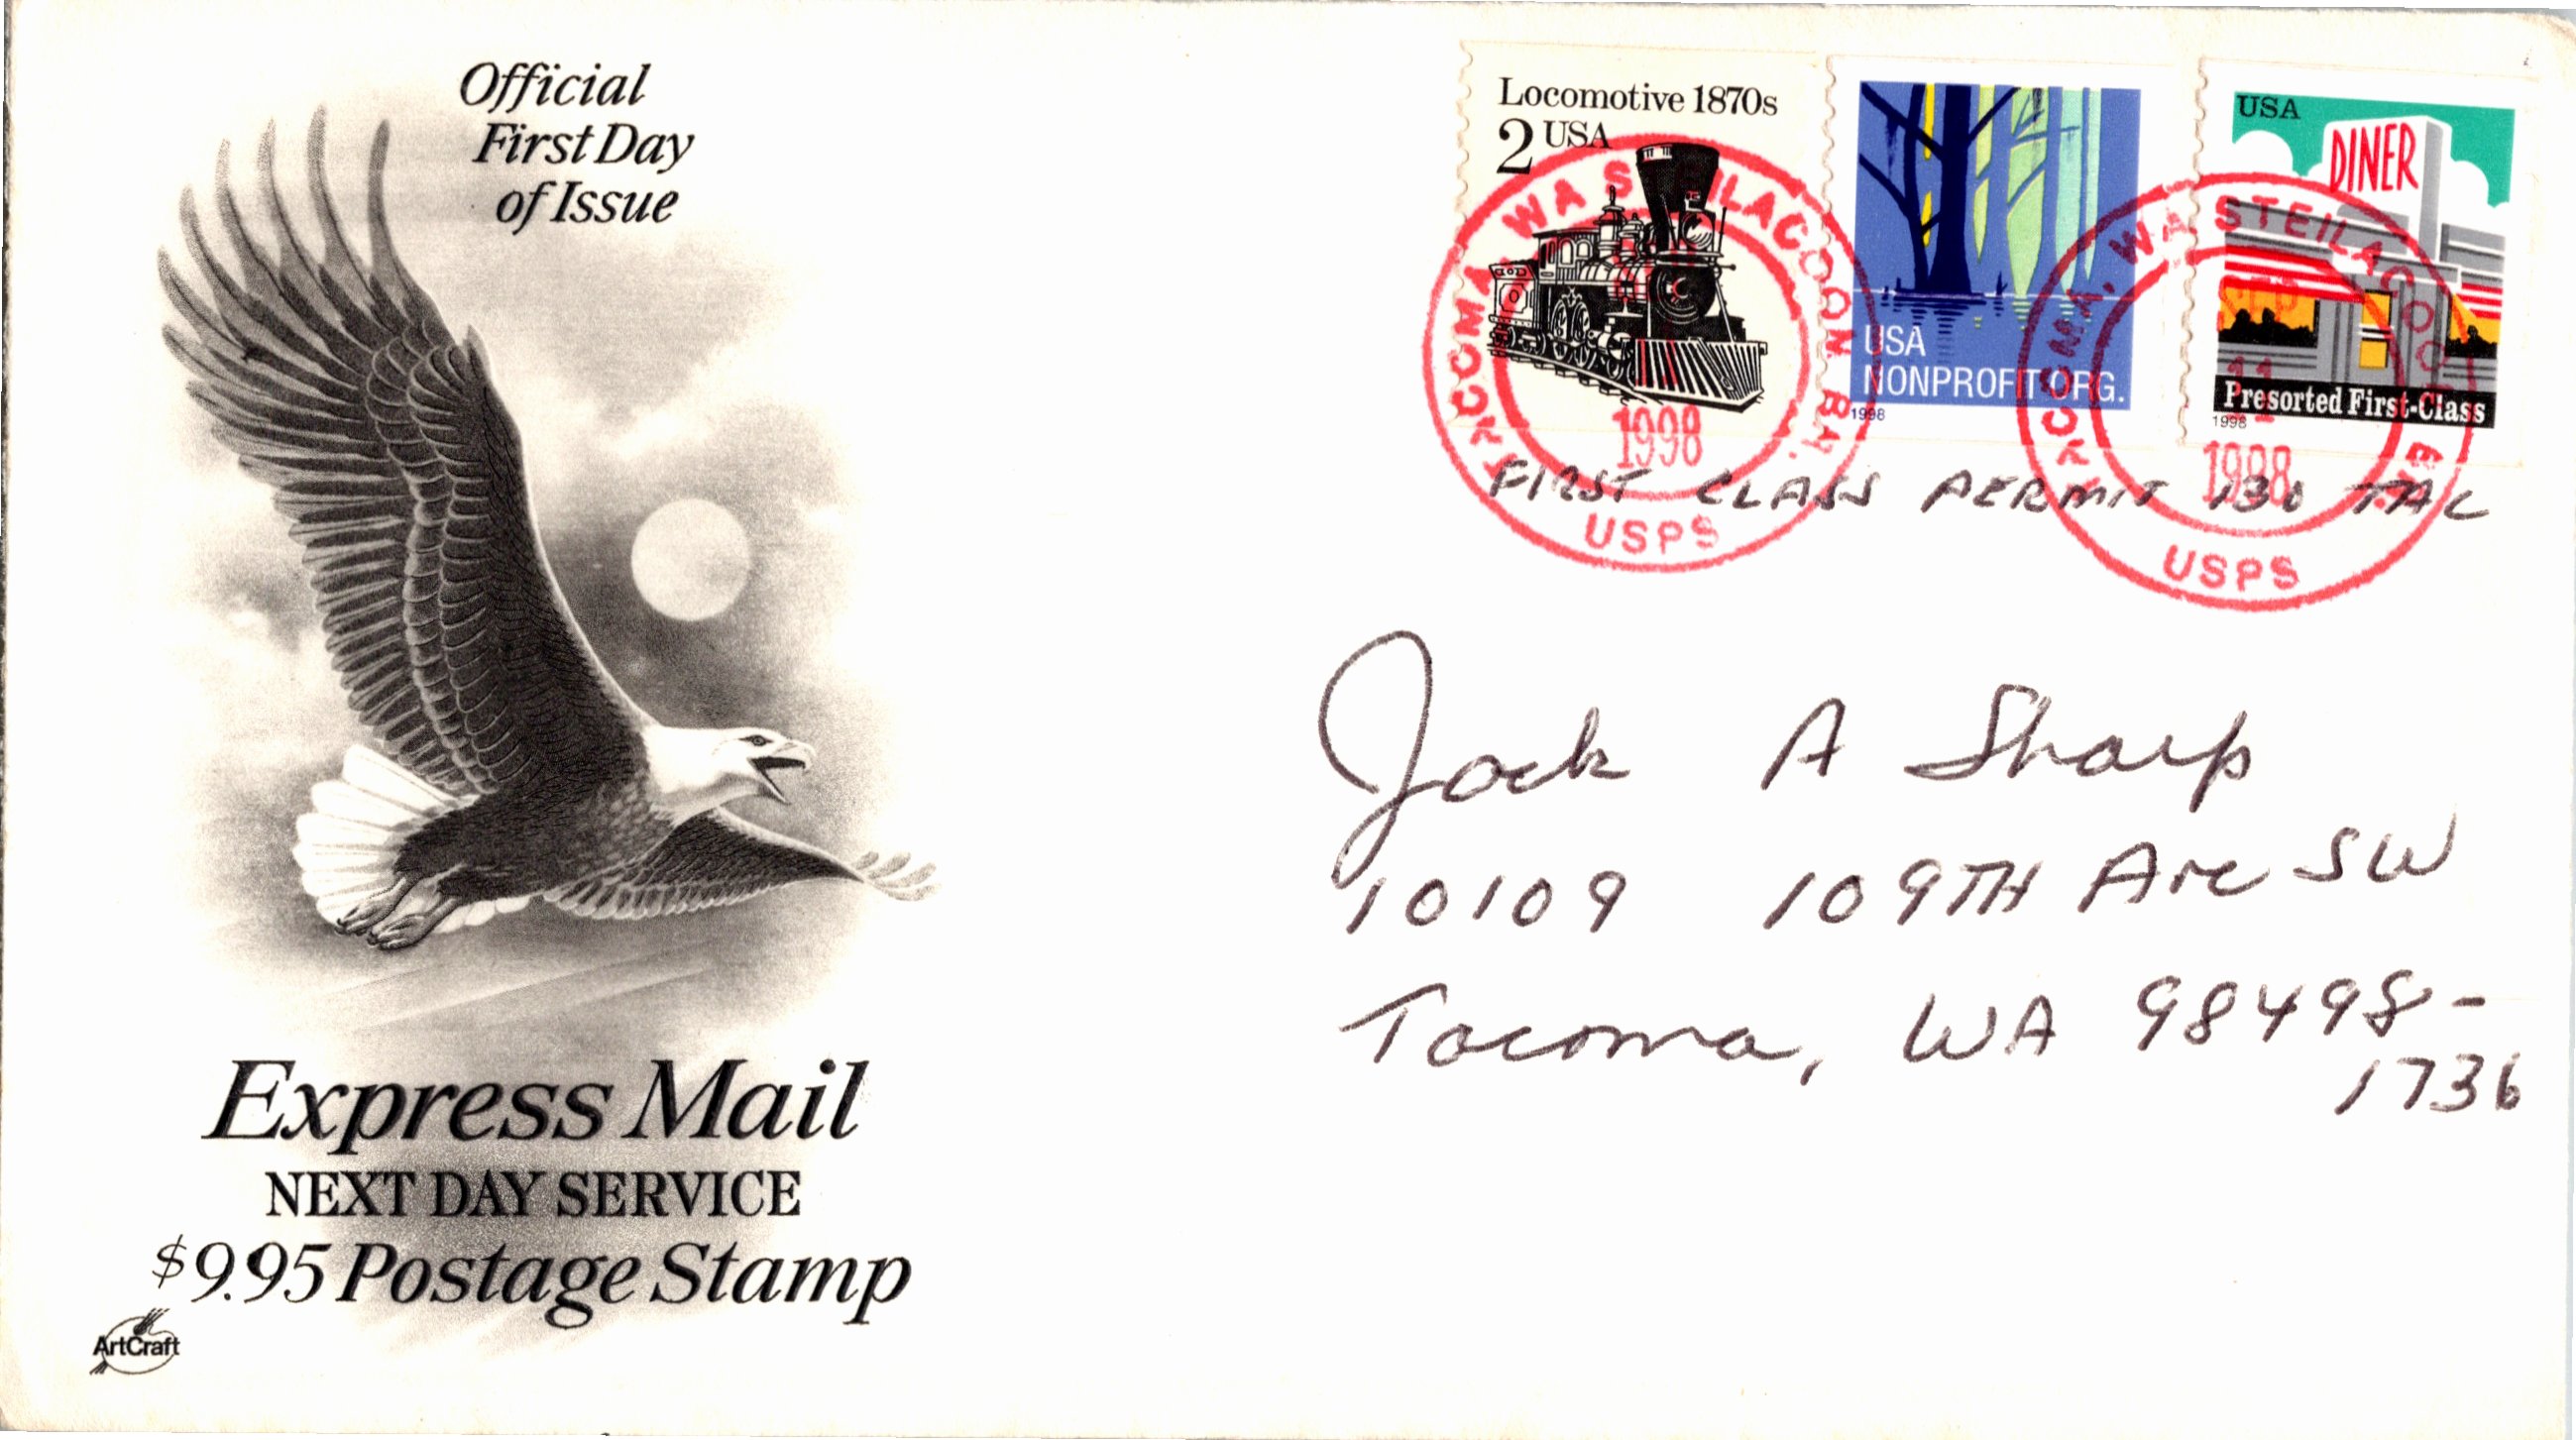 Official
First Day
of Issue
Locomotive 1870s
2 USA
USA
NONPROFIT ORG.
1998
USA
DINER
Presorted First-Class
1998
TACOMA, WA STEILACOOM BR.
1998
USPS
TACOMA, WA STEILACOOM
SEP
11
1998
USPS
FIRST CLASS PERMIT 130 TAC
Jack A Sharp
10109 109TH Ave SW
Tacoma, WA 98498-
1736
Express Mail
NEXT DAY SERVICE
$9.95 Postage Stamp
ArtCraft